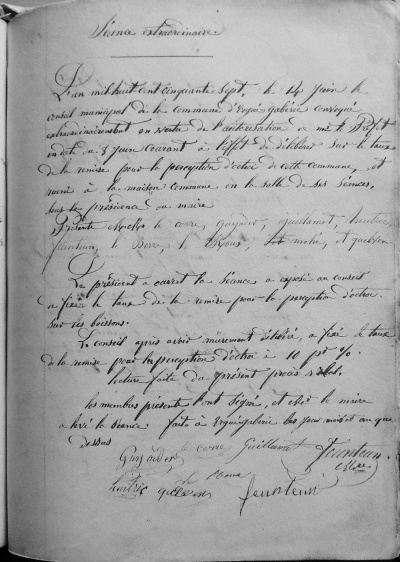 Séance extraordinaire
L'an mil huit cent cinquante sept, le 14 juin le
conseil municipal de la commune d'Ergué gabéric convoqué
extraordinairement en vertu de l'autorisation de mr le Préfet
en date du 3 juin courant à l'effet de délibérer sur le taux
de la remise pour la perception d'octroi de cette commune, et
réuni à la maison commune en la salle de ses séances,
sous la présidence du maire
Présents le corre, gayader, guillamet, huitric,
feunteun, le Berre, le et
Le président a ouvert la séance a exposé au conseil
a fixer le taux de la remise pour la perception d'octroi
sur les boissons.
Le conseil après avoir mûrement délibéré, a fixé le taux
de la remise pour la perception d'octroi à 10 pr %.
lecture faite du présent procès verbal,
les membres présents l'ont signé, et le maire
a levé la séance fait à Ergué gabéric les jour mois et an que
dessus
Guyader le corre Guillamet feunteun
huitric feunteun